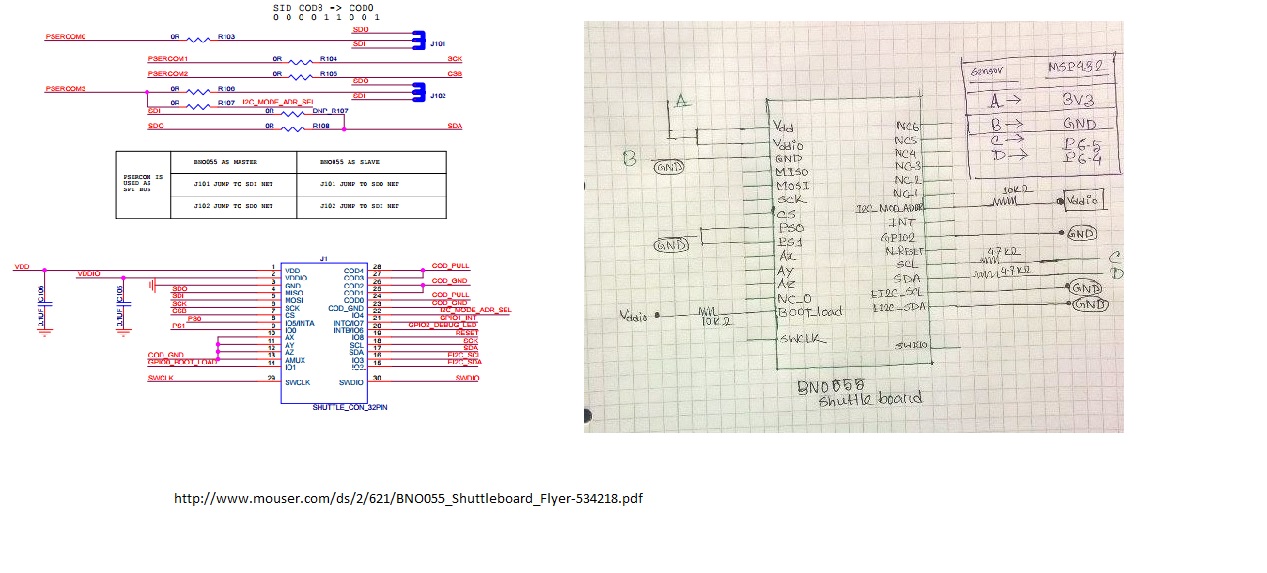 SID COD8 -> COD0
0 0 0 0 1 1 0 0 1
SDO
PSERCOM0 0R R103 SDI J101
PSERCOM1 0R R104 SCK
PSERCOM2 0R R105 CSB
SDO
PSERCOM3 0R R106 SDI J102
0R R107 I2C_MODE_ADR_SEL
SDI 0R DNP_R107
SDC 0R R108 SDA
PSERCOM IS USED AS SPI BUS
BNO055 AS MASTER BNO055 AS SLAVE
J101 JUMP TO SDI NET J101 JUMP TO SDO NET
J102 JUMP TO SDO NET J102 JUMP TO SDI NET
J1
VDD 1 VDD COD4 28 COD_PULL
VDDIO 2 VDDIO COD3 27
3 GND COD2 26 COD_GND
SDO 4 MISO COD1 25
SDI 5 MOSI COD0 24 COD_PULL
SCK 6 SCK COD_GND 23 COD_GND
CSB 7 CS IO4 22 I2C_MODE_ADR_SEL
PS0 8 IO5/INTA INTC/IO7 21 GPIO1_INT
PS1 9 IO0 INTB/IO6 20 GPIO2_DEBUG_LED
10 AX IO8 19 RESET
11 AY SCL 18 SCK
12 AZ SDA 17 SDA
COD_GND 13 AMUX IO3 16 EI2C_SCL
GPIO0_BOOT_LOAD 14 IO1 IO2 15 EI2C_SDA
SWCLK 29 SWCLK SWDIO 30 SWDIO
SHUTTLE_CON_32PIN
Sensor MSP432
A → 3V3
B → GND
C → P6-5
D → P6-4
A
Vdd NC6
Vddio NC5
B GND GND NC4
MISO NC-3
MOSI NC-2
SCK NC-1
10KΩ
CS I2C_MOD_ADDR Vddio
PS0 INT
GND PS1 GPIO2 GND
Ax N_RESET
4.7KΩ
Ay SCL C
4.7KΩ
Az SDA D
NC_0 EI2C_SCL GND
Vddio 10KΩ Boot_load EI2C_SDA GND
SWCLK SWDIO
BNO055
Shuttle board
http://www.mouser.com/ds/2/621/BNO055_Shuttleboard_Flyer-534218.pdf